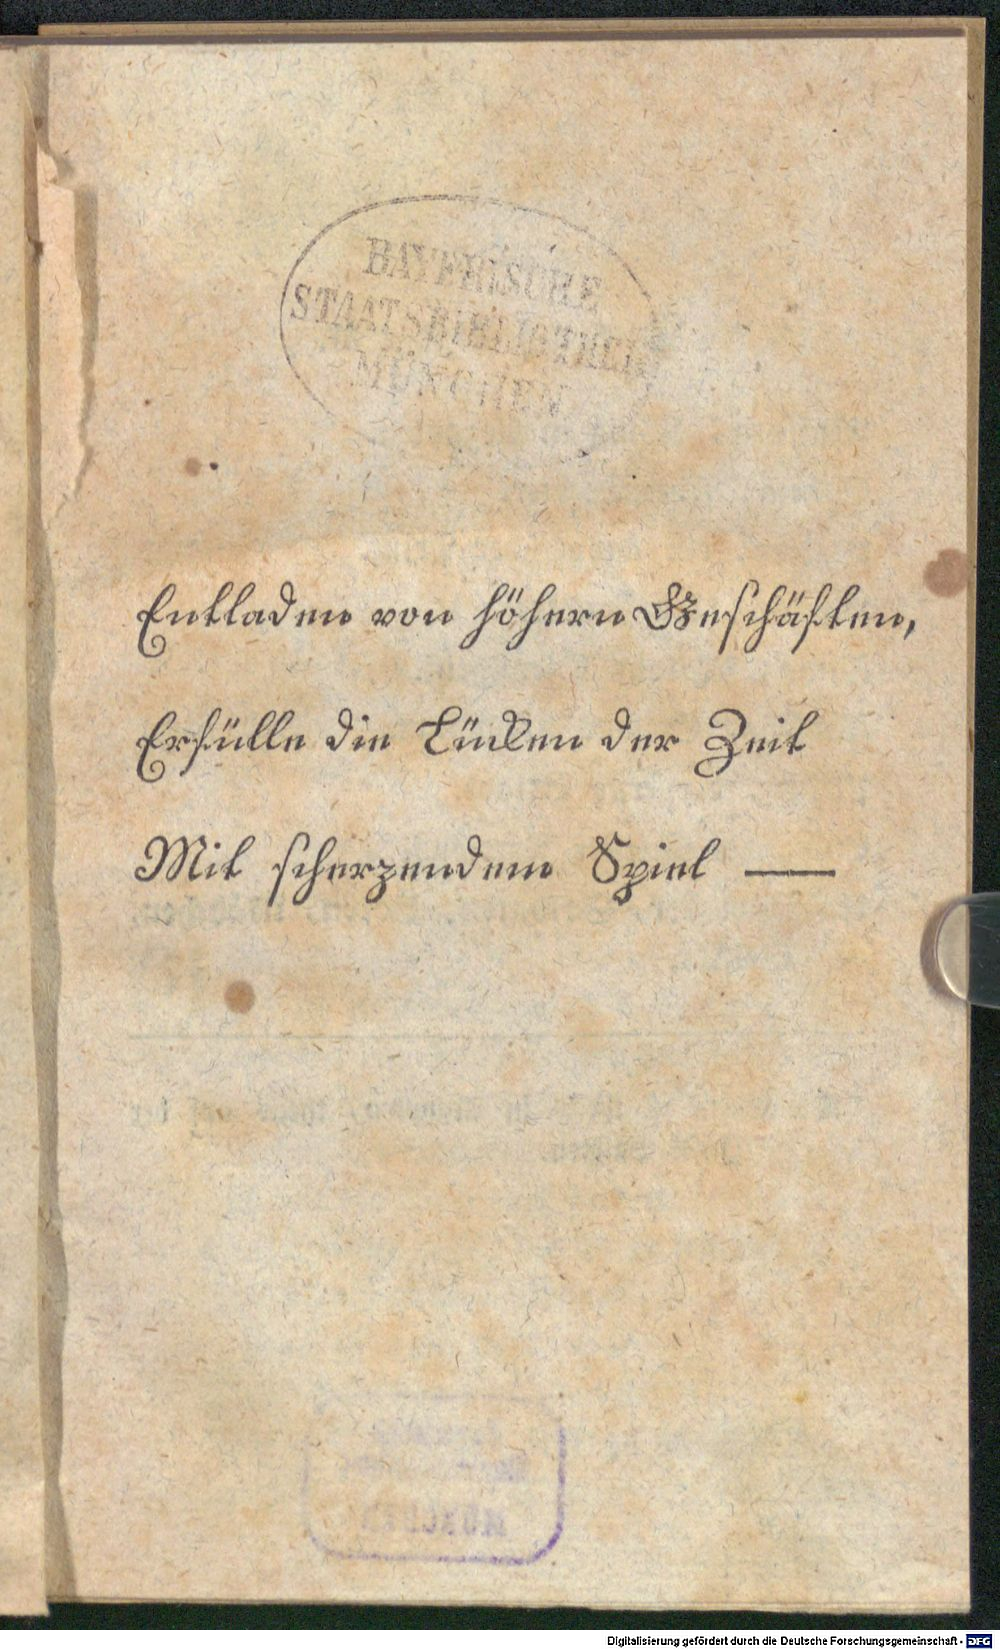 BAYERISCHE
STAATSBIBLIOTHEK
MÜNCHEN
Entladen von höhern Geschäften,
Erfülle die Lücken der Zeit
Mit scherzendem Spiel —
MÜNCHEN
Digitalisierung gefördert durch die Deutsche Forschungsgemeinschaft - DFG